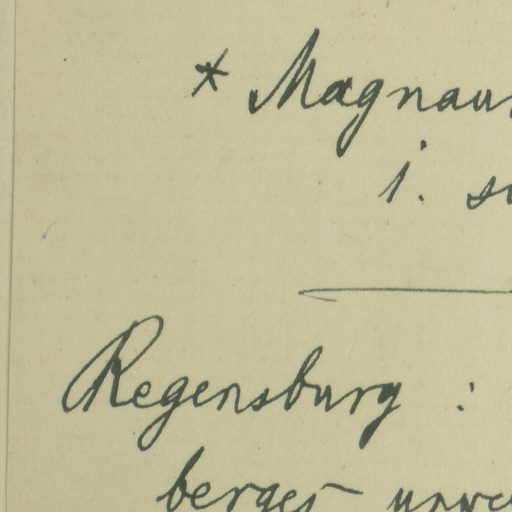 * Magnaus
i. su
Regensburg :
berges